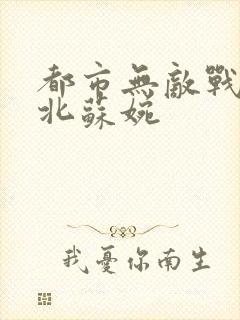 都市無敵戰
北蘇婉
我憂你南生